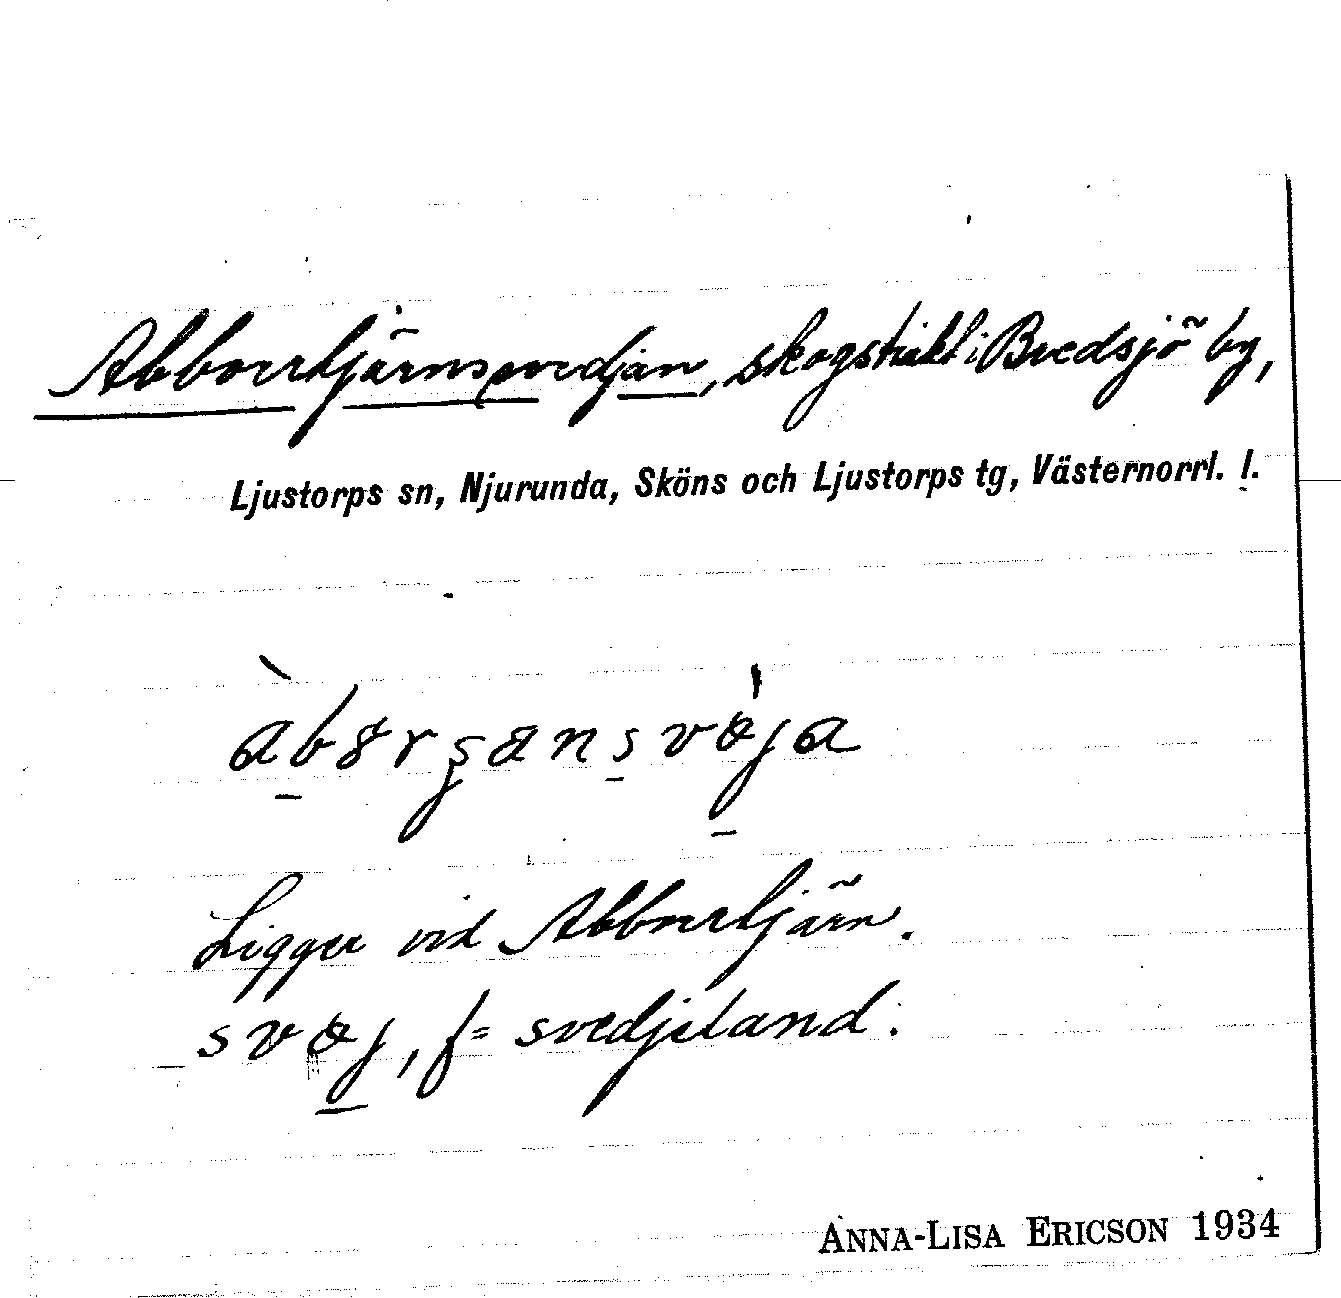 Abborrtjärnsvedjan, skogstrakt i Bredsjö by,
Ljustorps sn, Njurunda, Sköns och Ljustorps tg, Västernorrl. l.
Ligger vid Abborrtjärn.
svæj, f = svedjeland.
ANNA-LISA ERICSON 1934